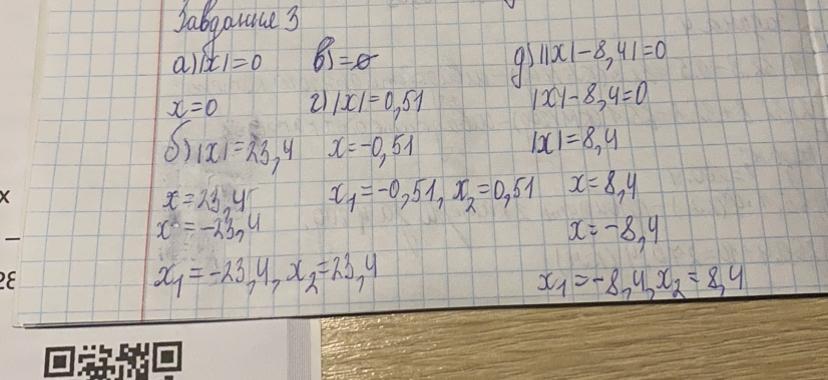 Завдання 3
а) |x|=0
x=0
б) |x|=23,4
x=23,4
x=-23,4
x₁=-23,4, x₂=23,4
в)=ø
г) |x|=0,51
x=-0,51
x₁=-0,51, x₂=0,51
д) ||x|-8,4|=0
|x|-8,4=0
|x|=8,4
x=8,4
x=-8,4
x₁=-8,4, x₂=8,4
x